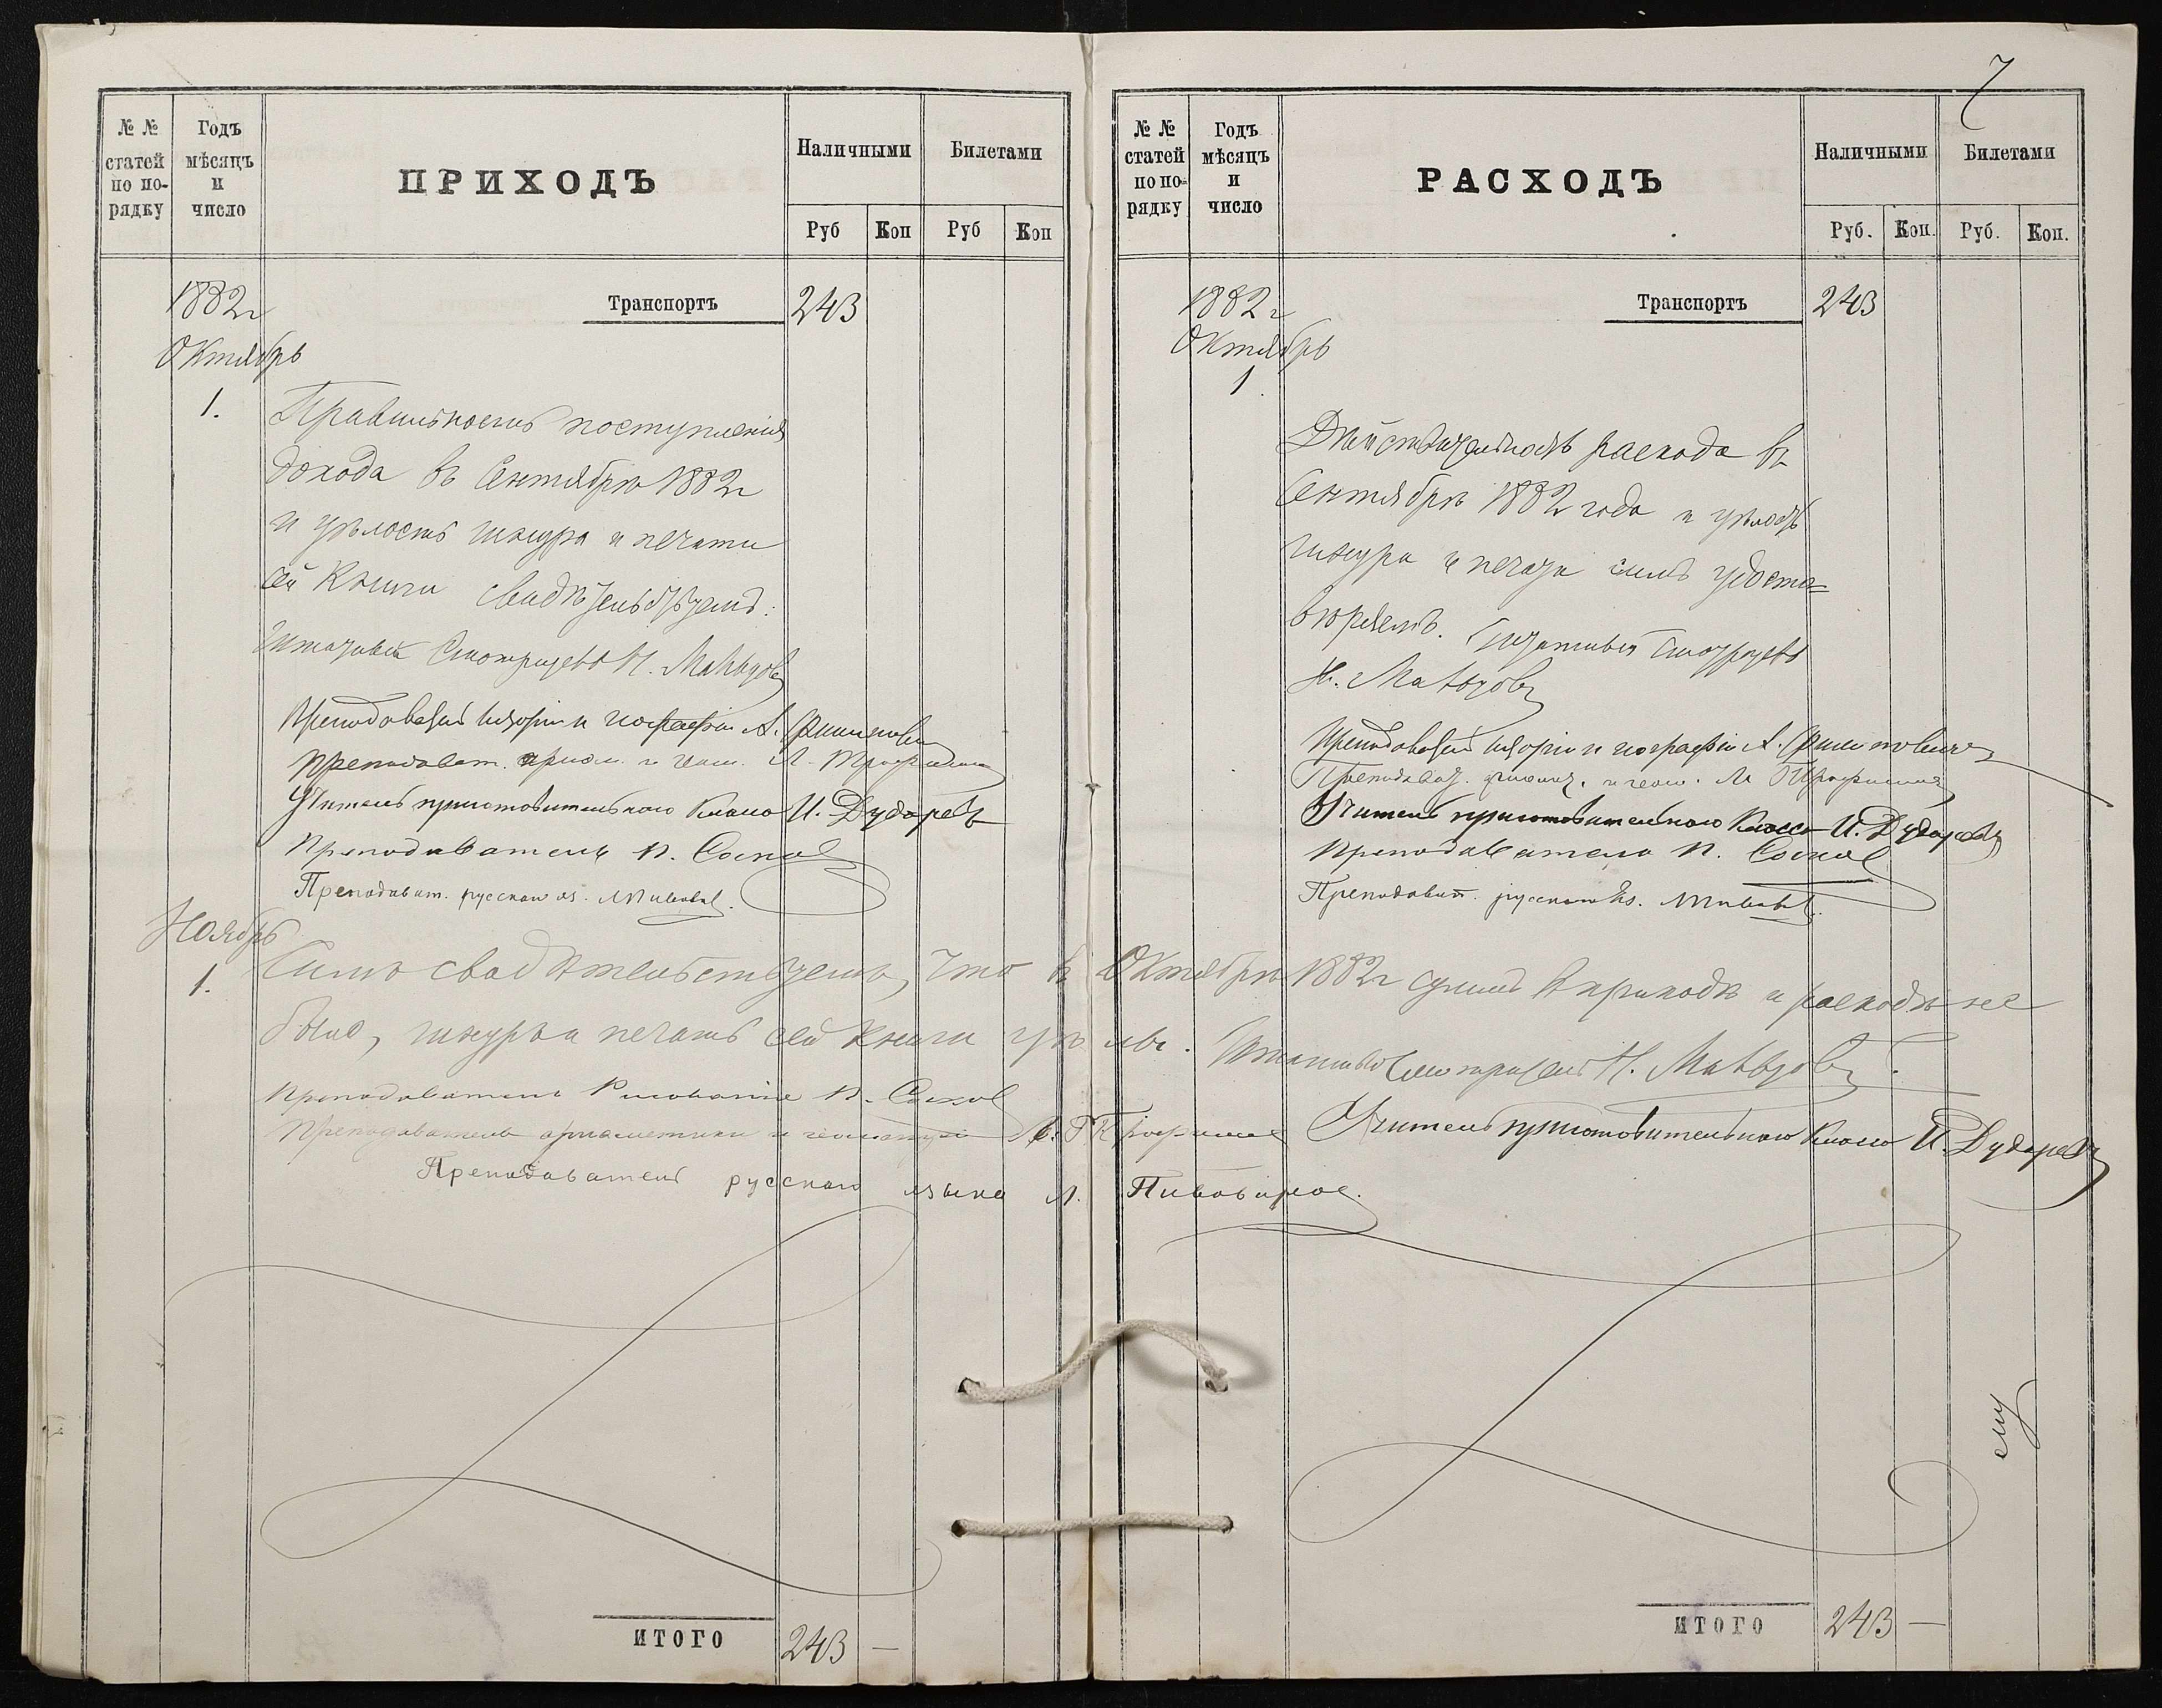 № №
статей
по по-
рядку
Годъ
мѣсяцъ
и
число
ПРИХОДЪ
Наличными
Билетами
Руб
Коп
Руб
Коп
1882 г
Транспортъ
243
Октябрь
1.
Правильность поступленія
дохода въ Сентябрѣ 1882 г
и цѣлость шнура и печати
сей книги свидѣтельствуемъ:
Штатный Смотритель Н.
Преподаватель исторіи и географіи А.
Преподават. ариѳм. и геом.
Учитель приготовительнаго класса И. Дударевъ
Преподаватель П.
Преподават. русскаго яз.
Ноябрь
1.
Симъ свидѣтельствуемъ, что въ Октябрѣ 1882 г суммъ въ приходѣ и расходѣ не
было, шнуръ и печать сей книги цѣлы. Штатный Смотритель Н.
Преподаватель Рисованія П.
Преподаватель ариѳметики и геометріи Учитель приготовительнаго класса И. Дударевъ
Преподаватель русскаго языка Л. Пивоваровъ.
ИТОГО
243 —
7
№ №
статей
по по-
рядку
Годъ
мѣсяцъ
и
число
РАСХОДЪ
Наличными
Билетами
Руб.
Коп.
Руб.
Коп.
1882 г
Транспортъ
243
Октябрь
1.
Дѣйствительность расхода въ
Сентябрѣ 1882 года и цѣлость
шнура и печати симъ удосто-
вѣряемъ. Штатный Смотритель
Н.
Преподаватель исторіи и географіи А.
Преподават. ариѳмет. и геом.
Учитель приготовительнаго класса И. Дударевъ
Преподаватель П.
Преподават. русскаго яз.
ИТОГО
243 —